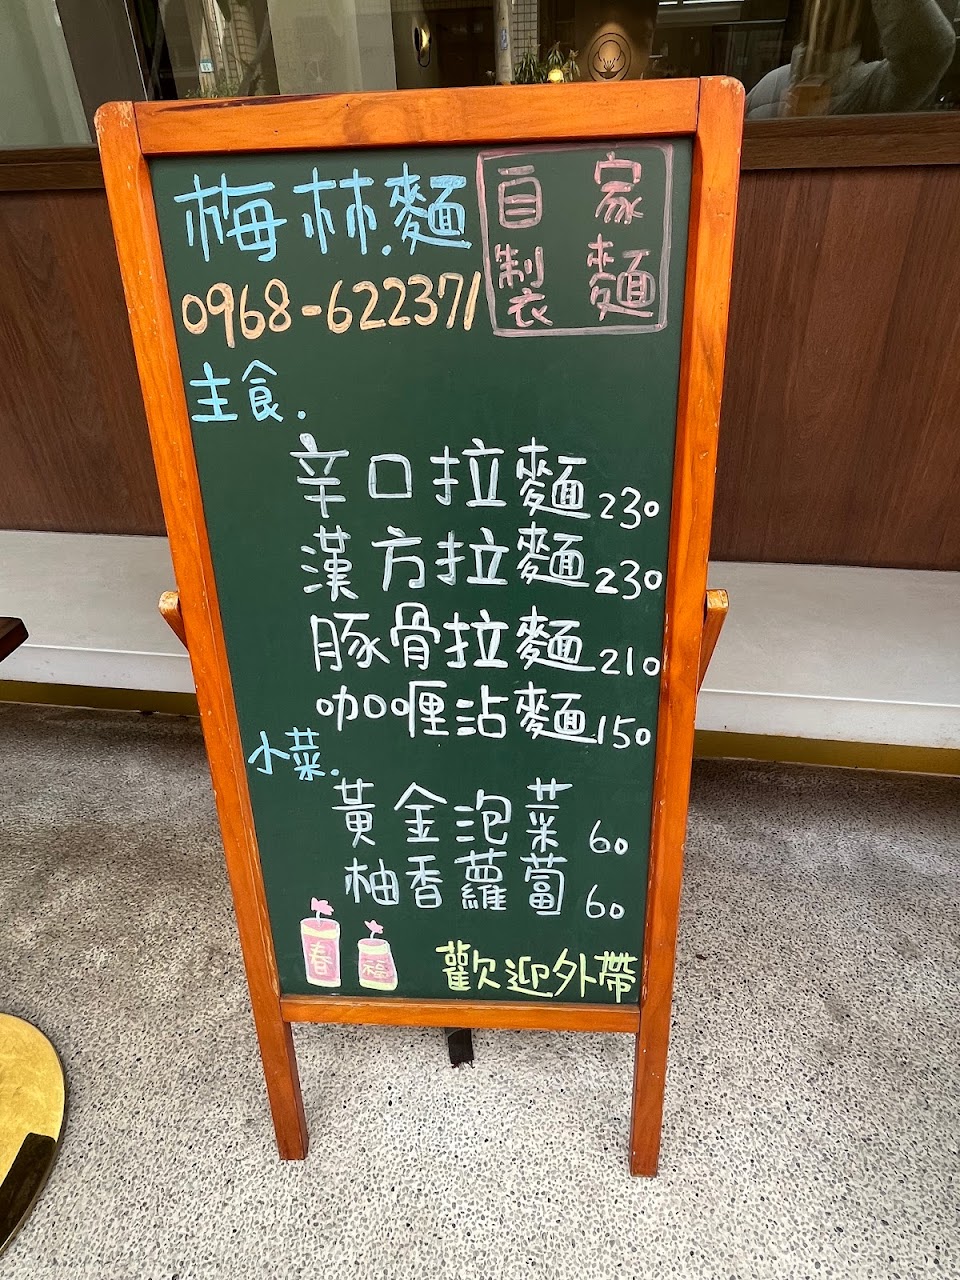 梅林.麵
自家
製麵
0968-622371
主食.
辛口拉麵230
漢方拉麵230
豚骨拉麵210
咖喱沾麵150
小菜.
黃金泡菜 60
柚香蘿蔔 60
春 福
歡迎外帶